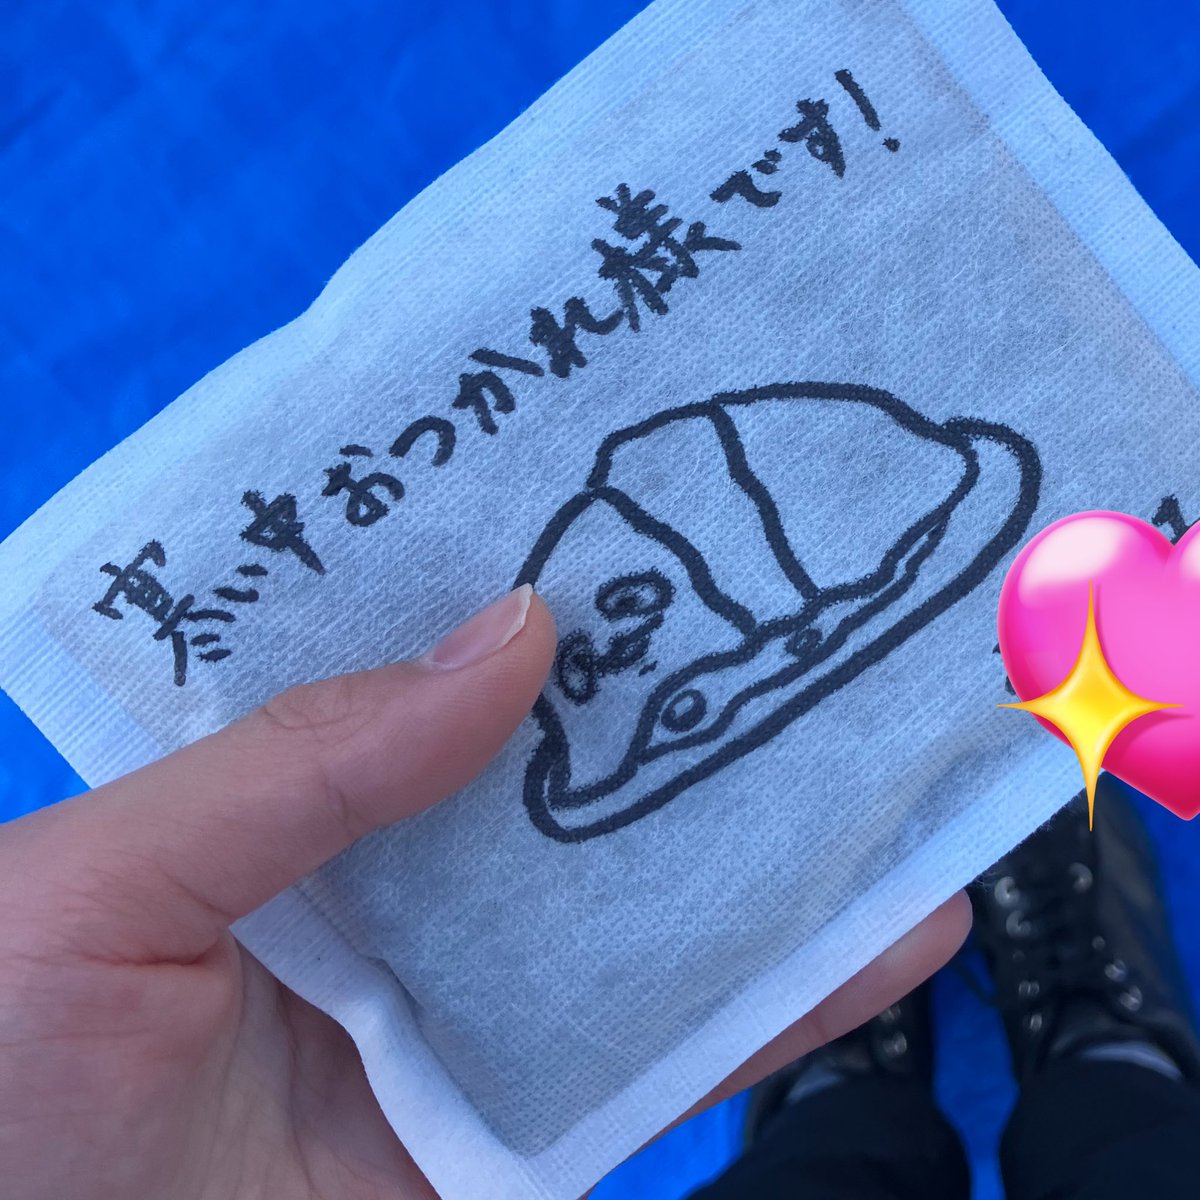 寒い中おつかれ様です!